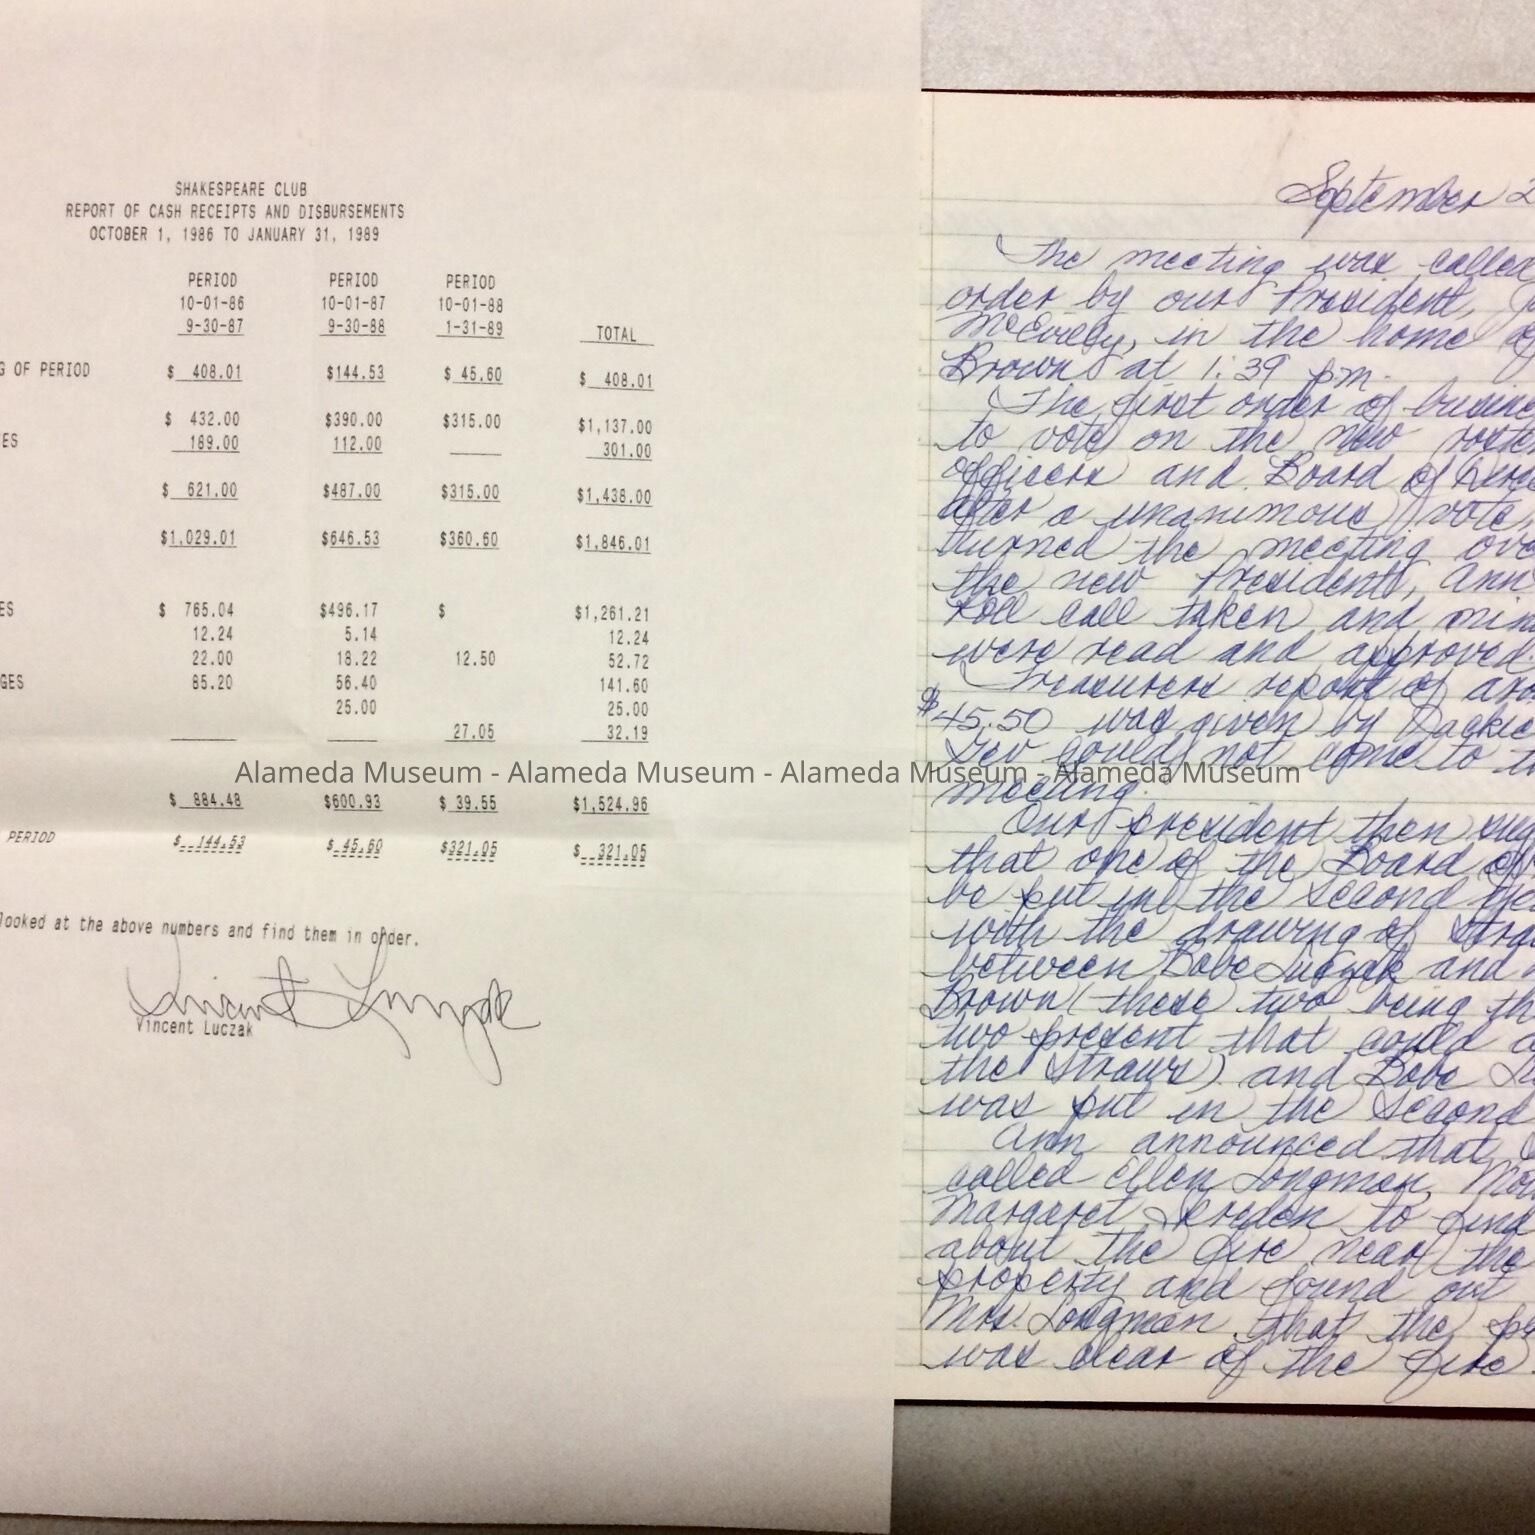 SHAKESPEARE CLUB
REPORT OF CASH RECEIPTS AND DISBURSEMENTS
OCTOBER 1, 1986 TO JANUARY 31, 1989
PERIOD PERIOD PERIOD
10-01-86 10-01-87 10-01-88
9-30-87 9-30-88 1-31-89 TOTAL
G OF PERIOD $ 408.01 $144.53 $ 45.60 $ 408.01
$ 432.00 $390.00 $315.00 $1,137.00
ES 189.00 112.00 301.00
$ 621.00 $487.00 $315.00 $1,438.00
$1,029.01 $646.53 $360.60 $1,846.01
ES $ 765.04 $496.17 $ $1,261.21
12.24 5.14 12.24
22.00 18.22 12.50 52.72
GES 85.20 56.40 141.60
25.00 25.00
27.05 32.19
$ 884.48 $600.93 $ 39.55 $1,524.96
PERIOD $ 144.53 $ 45.60 $321.05 $ 321.05
looked at the above numbers and find them in order.
Vincent Luczak
Vincent Luczak
September 2
The meeting was called
order by our President,
McEvilly, in the home of
Brown at 1:39 p.m.
The first order of busine
to vote on the new roster
officers and Board of Direc
after a unanimous vote,
turned the meeting ove
the new President, Ann
Roll call taken and min
were read and approved.
Treasurers report of
$45.50 was given by Jackie
Gev could not come to th
meeting.
Our president then sug
that one of the Board of
be put in the second ye
with the drawing of stra
between Babe Luczak and
Brown (these two being th
two present that could
the straws) and Babe Lu
was put in the second
Ann announced that
called Ellen Longman,
Margaret to find
about the fire near the
property and found out
Mrs. Longman that the
was clear of the fire.
Alameda Museum - Alameda Museum - Alameda Museum - Alameda Museum